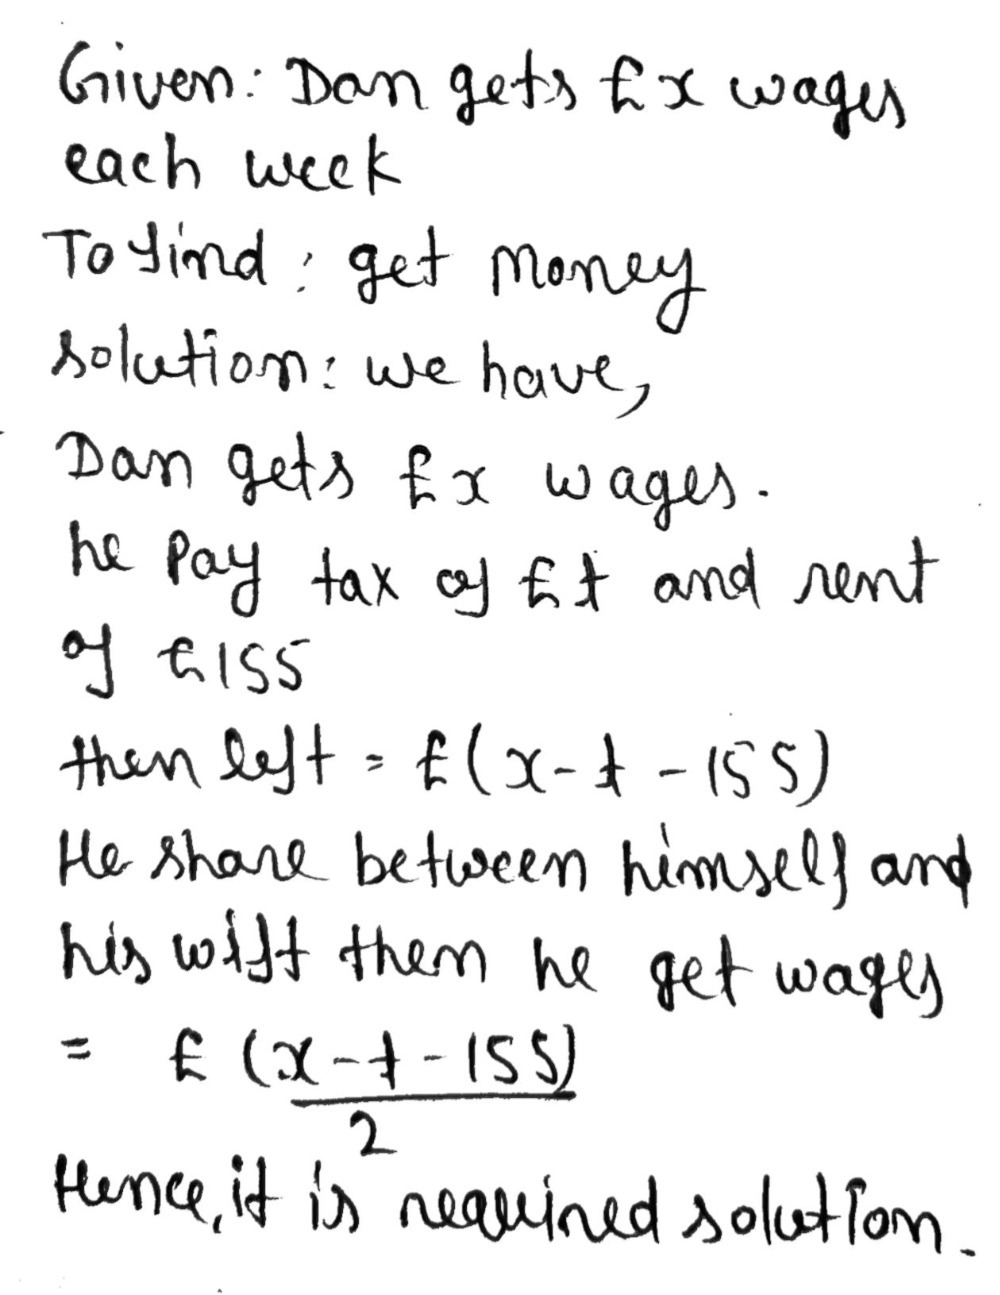 Given: Dan gets £x wages
each week
To find: get money
solution: we have,
Dan gets £x wages.
he pay tax of £t and rent
of £155
then left = £(x-t-155)
He share between himself and
his wift then he get wages
= £ (x-t-155)
2
Hence, it is required solution.